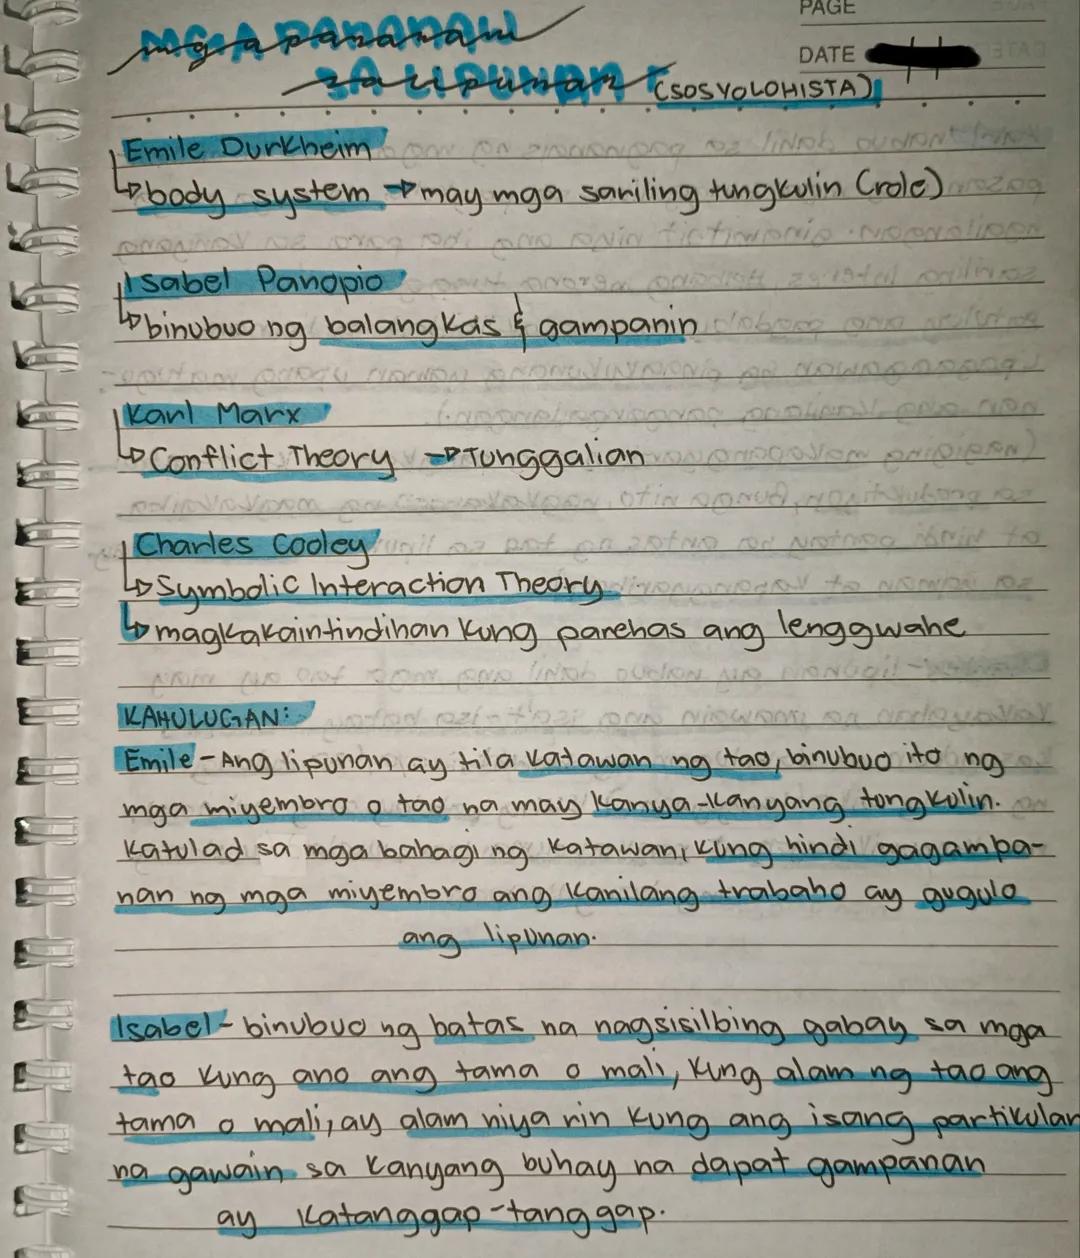 PAGE
MGA PANANAW
DATE
SA LIPUNAN (SOSYOLOHISTA)
Emile Durkheim
↳body system → may mga sariling tungkulin (role)
Isabel Panopio
↳binubuo ng balangkas & gampanin
Karl Marx
↳Conflict Theory → Tunggalian
Charles Cooley
↳Symbolic Interaction Theory
↳magkakaintindihan kung parehas ang lenggwahe
KAHULUGAN:
Emile - Ang lipunan ay tila katawan ng tao, binubuo ito ng
mga miyembro o tao na may kanya-kanyang tungkulin.
Katulad sa mga bahagi ng katawan, kung hindi gagampa-
nan ng mga miyembro ang kanilang trabaho ay gugulo
ang lipunan.
Isabel - binubuo ng batas na nagsisilbing gabay sa mga
tao kung ano ang tama o mali, kung alam ng tao ang
tama o mali, ay alam niya rin kung ang isang partikular
na gawain sa kanyang buhay na dapat gampanan
ay katanggap-tanggap.